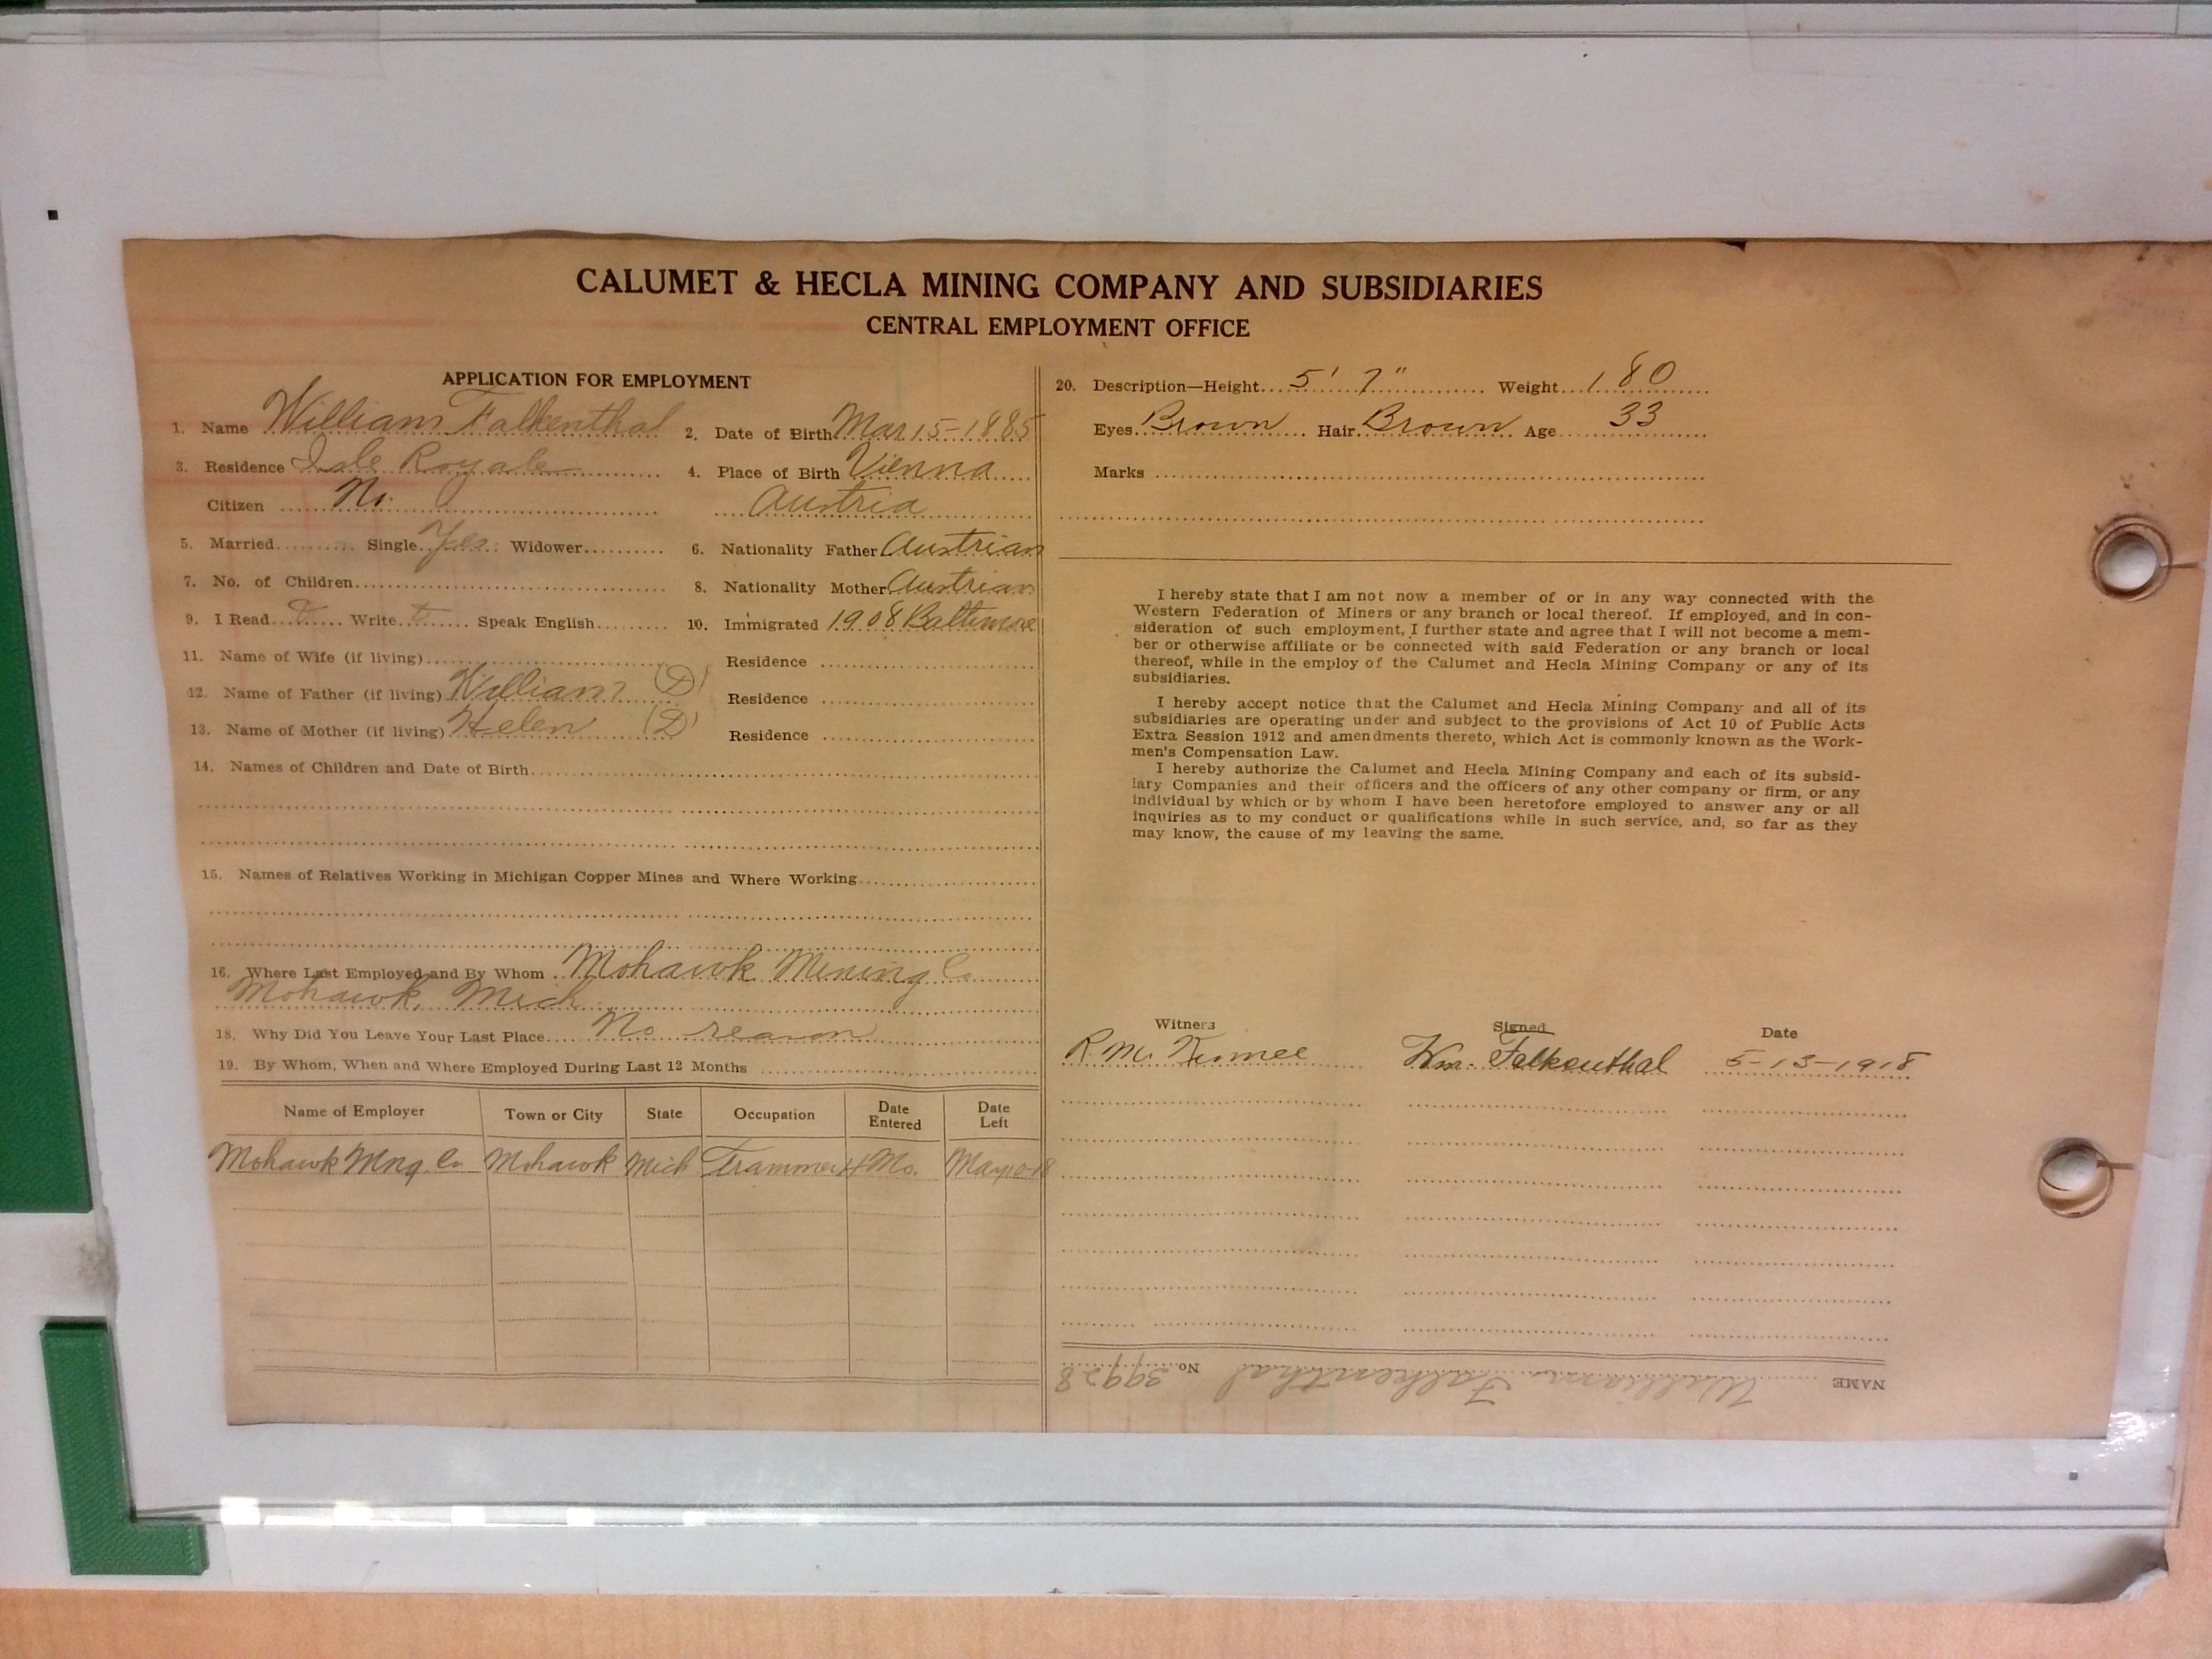 CALUMET & HECLA MINING COMPANY AND SUBSIDIARIES
CENTRAL EMPLOYMENT OFFICE
APPLICATION FOR EMPLOYMENT
1. Name William Falkenthal 2. Date of Birth Mar 15-1885
3. Residence Isle Royale 4. Place of Birth Vienna
Citizen No. Austria
5. Married Single Yes Widower 6. Nationality Father Austrian
7. No. of Children 8. Nationality Mother Austrian
9. I Read Write Speak English 10. Immigrated 1908 Baltimore
11. Name of Wife (if living) Residence
12. Name of Father (if living) William (D) Residence
13. Name of Mother (if living) Helen (D) Residence
14. Names of Children and Date of Birth
15. Names of Relatives Working in Michigan Copper Mines and Where Working
16. Where Last Employed and By Whom Mohawk Mining Co
Mohawk, Mich
18. Why Did You Leave Your Last Place No reason
19. By Whom, When and Where Employed During Last 12 Months
Name of Employer Town or City State Occupation Date Entered Date Left
Mohawk Mng Co Mohawk Mich Trammer 4 Mo. May 10-18
20. Description—Height 5' 7" Weight 180
Eyes Brown Hair Brown Age 33
Marks
I hereby state that I am not now a member of or in any way connected with the
Western Federation of Miners or any branch or local thereof. If employed, and in con-
sideration of such employment, I further state and agree that I will not become a mem-
ber or otherwise affiliate or be connected with said Federation or any branch or local
thereof, while in the employ of the Calumet and Hecla Mining Company or any of its
subsidiaries.
I hereby accept notice that the Calumet and Hecla Mining Company and all of its
subsidiaries are operating under and subject to the provisions of Act 10 of Public Acts
Extra Session 1912 and amendments thereto, which Act is commonly known as the Work-
men's Compensation Law.
I hereby authorize the Calumet and Hecla Mining Company and each of its subsid-
iary Companies and their officers and the officers of any other company or firm, or any
individual by which or by whom I have been heretofore employed to answer any or all
inquiries as to my conduct or qualifications while in such service, and, so far as they
may know, the cause of my leaving the same.
Witness Signed Date
R. M. Wm. Falkenthal 5-13-1918
NAME William Falkenthal No. 39928